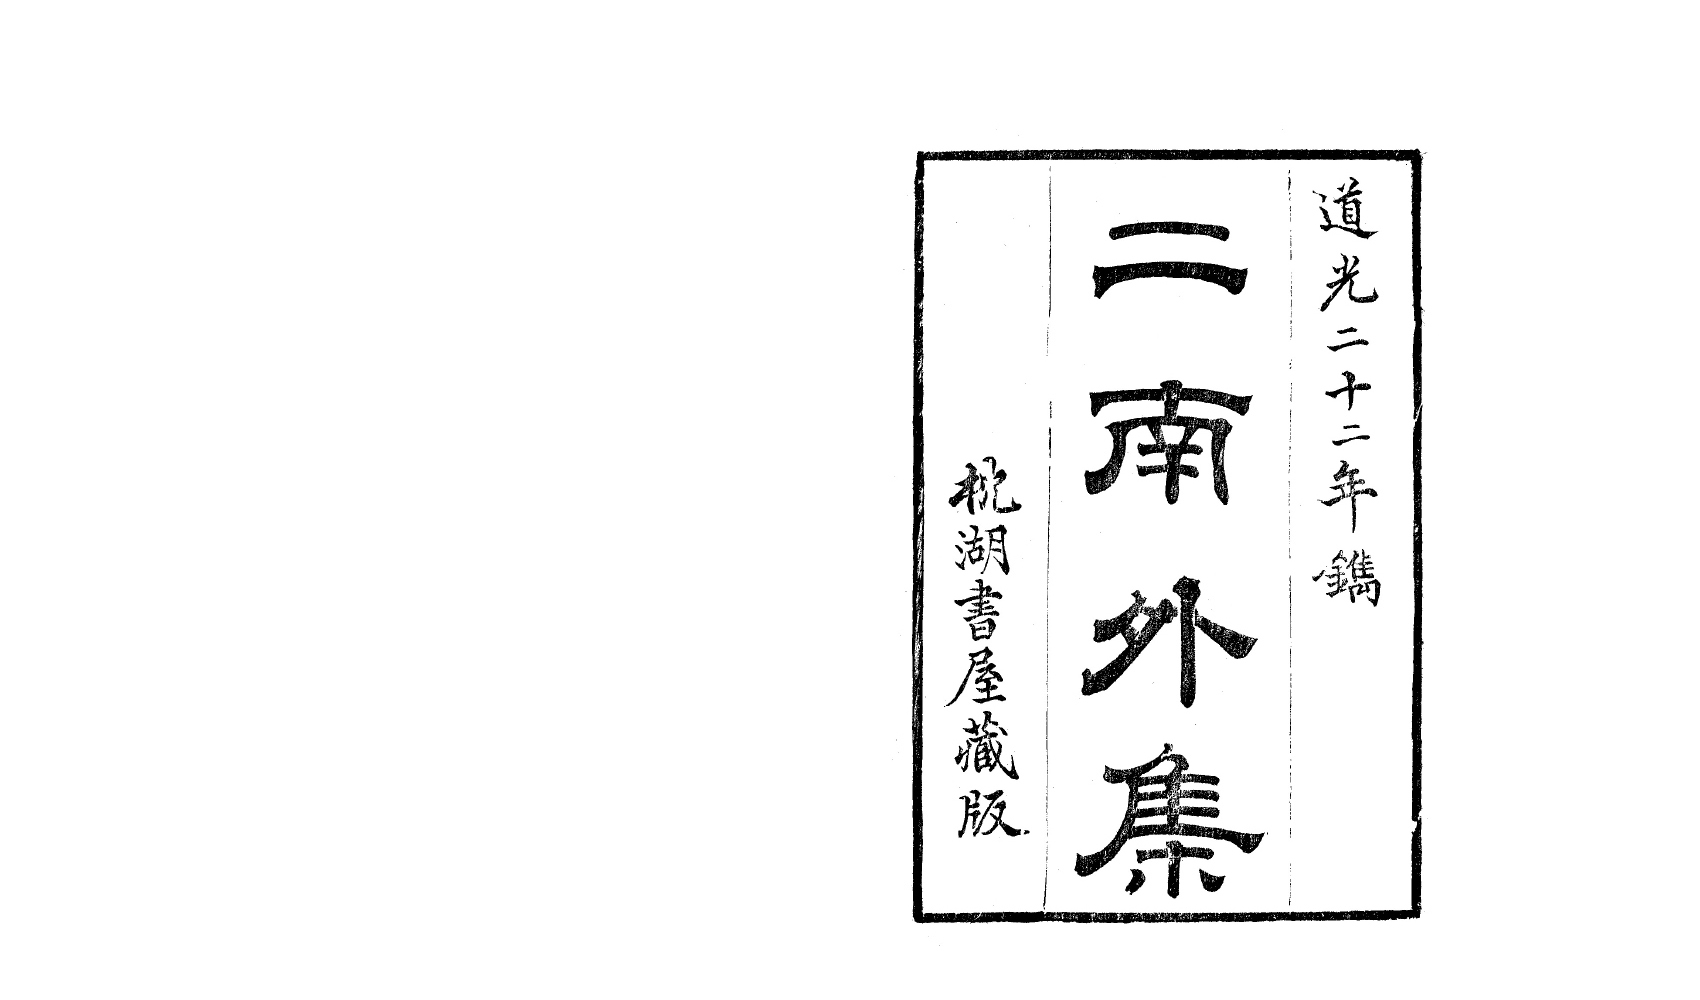 道光二十二年鐫
二南外集
桃湖書屋藏版